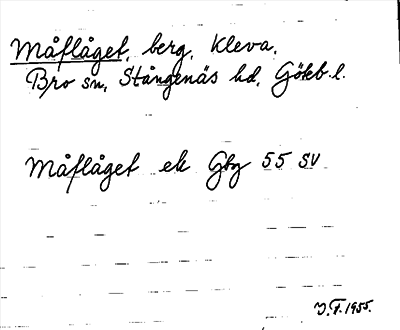 Måflåget, berg, Kleva,
Bro sn, Stångenäs hd, Göteb. l.
Måflåget ek Gbg 55 SV
J.F. 1955.